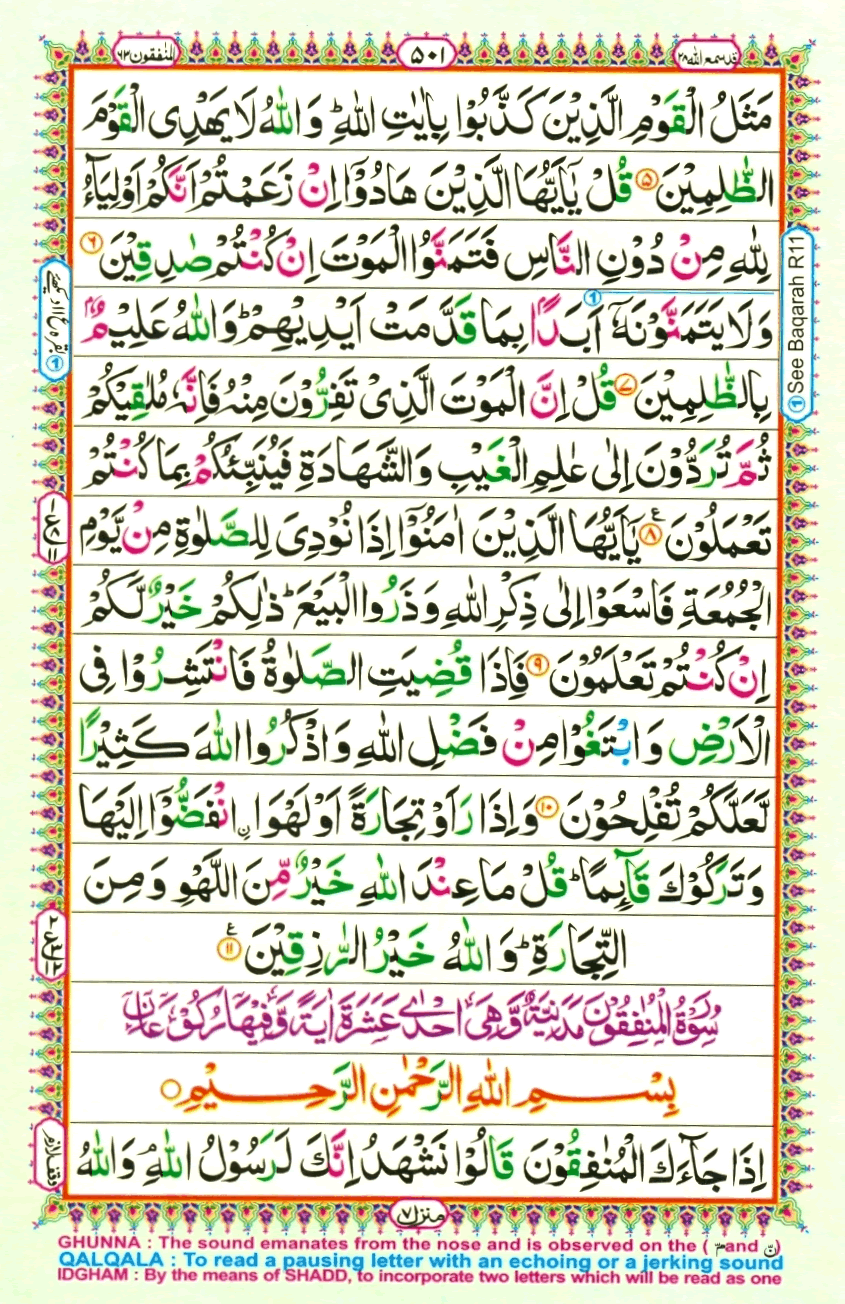 قد سمع الله ٢٨
٥٠١
المنفقون ٦٣
مَثَلُ الْقَوْمِ الَّذِيْنَ كَذَّبُوْا بِاٰيٰتِ اللّٰهِ ؕ وَاللّٰهُ لَا يَهْدِى الْقَوْمَ
الظّٰلِمِيْنَ ۝٥ قُلْ يٰۤاَيُّهَا الَّذِيْنَ هَادُوْۤا اِنْ زَعَمْتُمْ اَنَّكُمْ اَوْلِيَآءُ
لِلّٰهِ مِنْ دُوْنِ النَّاسِ فَتَمَنَّوُا الْمَوْتَ اِنْ كُنْتُمْ صٰدِقِيْنَ ۝٦
وَلَا يَتَمَنَّوْنَهٗۤ اَبَدًۢا بِمَا قَدَّمَتْ اَيْدِيْهِمْ ؕ وَاللّٰهُ عَلِيْمٌۢ
بِالظّٰلِمِيْنَ ۝٧ قُلْ اِنَّ الْمَوْتَ الَّذِىْ تَفِرُّوْنَ مِنْهُ فَاِنَّهٗ مُلٰقِيْكُمْ
ثُمَّ تُرَدُّوْنَ اِلٰى عٰلِمِ الْغَيْبِ وَالشَّهَادَةِ فَيُنَبِّئُكُمْ بِمَا كُنْتُمْ
تَعْمَلُوْنَ ۝٨ ع يٰۤاَيُّهَا الَّذِيْنَ اٰمَنُوْۤا اِذَا نُوْدِىَ لِلصَّلٰوةِ مِنْ يَّوْمِ
الْجُمُعَةِ فَاسْعَوْا اِلٰى ذِكْرِ اللّٰهِ وَذَرُوا الْبَيْعَ ؕ ذٰلِكُمْ خَيْرٌ لَّكُمْ
اِنْ كُنْتُمْ تَعْلَمُوْنَ ۝٩ فَاِذَا قُضِيَتِ الصَّلٰوةُ فَانْتَشِرُوْا فِى
الْاَرْضِ وَابْتَغُوْا مِنْ فَضْلِ اللّٰهِ وَاذْكُرُوا اللّٰهَ كَثِيْرًا
لَّعَلَّكُمْ تُفْلِحُوْنَ ۝١٠ وَاِذَا رَاَوْ تِجَارَةً اَوْ لَهْوَا ۨانْفَضُّوْۤا اِلَيْهَا
وَتَرَكُوْكَ قَآئِمًا ؕ قُلْ مَا عِنْدَ اللّٰهِ خَيْرٌ مِّنَ اللَّهْوِ وَمِنَ
التِّجَارَةِ ؕ وَاللّٰهُ خَيْرُ الرّٰزِقِيْنَ ۝١١ ع
سُوْرَةُ الْمُنٰفِقُوْنَ مَدَنِيَّةٌ وَّهِىَ اِحْدٰى عَشَرَةَ اٰيَةً وَّفِيْهَا رُكُوْعَانِ
بِسْمِ اللّٰهِ الرَّحْمٰنِ الرَّحِيْمِ
اِذَا جَآءَكَ الْمُنٰفِقُوْنَ قَالُوْا نَشْهَدُ اِنَّكَ لَرَسُوْلُ اللّٰهِ ۘ وَاللّٰهُ
① See Baqarah R11
وقف لازم
منزل ٧
GHUNNA : The sound emanates from the nose and is observed on the ( مّ and نّ )
QALQALA : To read a pausing letter with an echoing or a jerking sound
IDGHAM : By the means of SHADD, to incorporate two letters which will be read as one